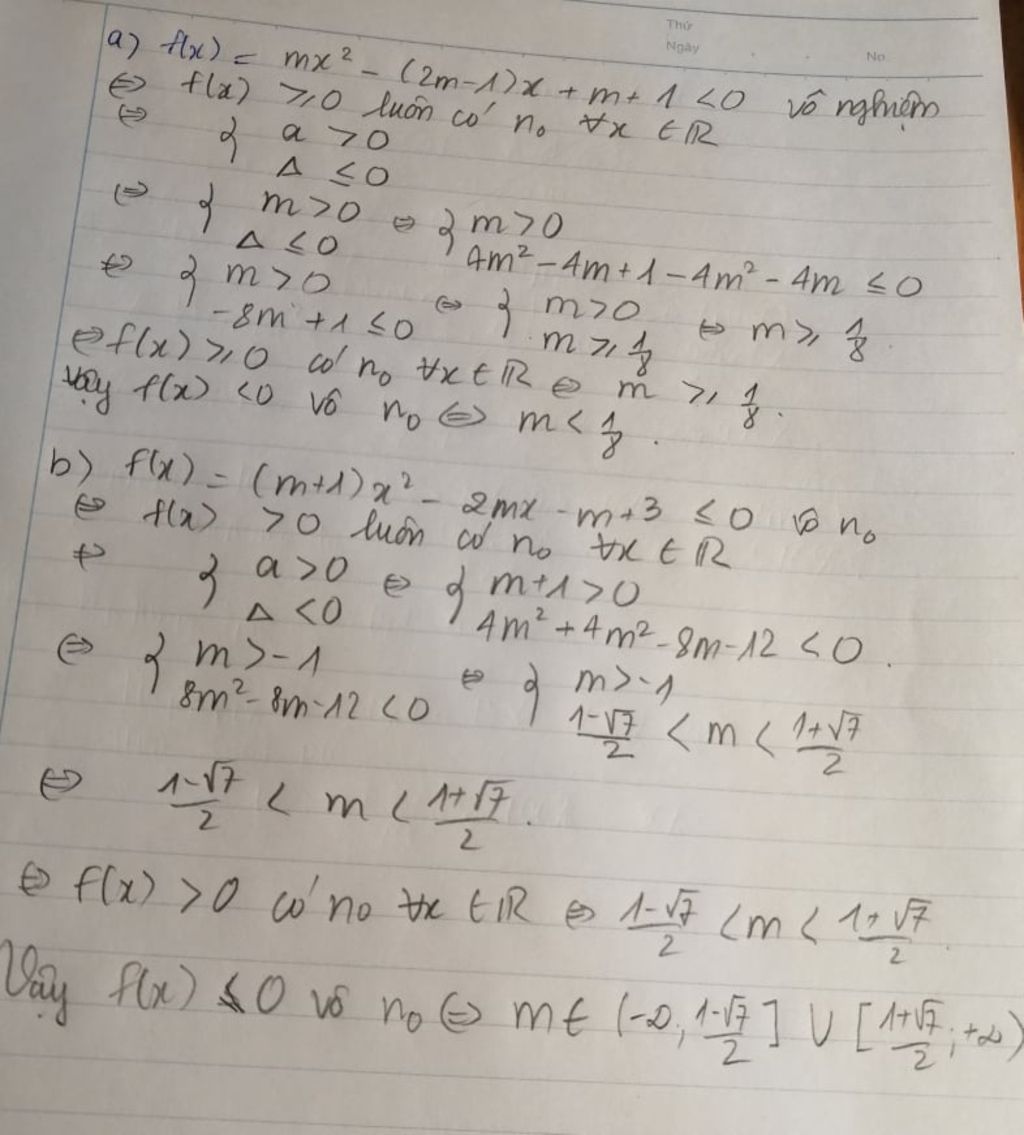 Thứ
Ngày
No
a) f(x) = mx² - (2m-1)x + m + 1 < 0 vô nghiệm
⇔ f(x) ⩾ 0 luôn có n₀ ∀x ∈ ℝ
⇔ { a > 0
Δ ≤ 0
⇔ { m > 0 ⇔ { m > 0
Δ ≤ 0 4m² - 4m + 1 - 4m² - 4m ≤ 0
⇔ { m > 0 ⇔ { m > 0 ⇔ m ⩾ 1/8.
-8m + 1 ≤ 0 m ⩾ 1/8
⇔ f(x) ⩾ 0 có n₀ ∀x ∈ ℝ ⇔ m ⩾ 1/8.
Vậy f(x) < 0 vô n₀ ⇔ m < 1/8.
b) f(x) = (m+1)x² - 2mx - m + 3 ≤ 0 vô n₀
⇔ f(x) > 0 luôn có n₀ ∀x ∈ ℝ
⇔ { a > 0 ⇔ { m + 1 > 0
Δ < 0 4m² + 4m² - 8m - 12 < 0.
⇔ { m > -1 ⇔ { m > -1
8m² - 8m - 12 < 0 (1-√7)/2 < m < (1+√7)/2
⇔ (1-√7)/2 < m < (1+√7)/2.
⇔ f(x) > 0 có n₀ ∀x ∈ ℝ ⇔ (1-√7)/2 < m < (1+√7)/2.
Vậy f(x) ≤ 0 vô n₀ ⇔ m ∈ (-∞; (1-√7)/2] ∪ [(1+√7)/2; +∞)